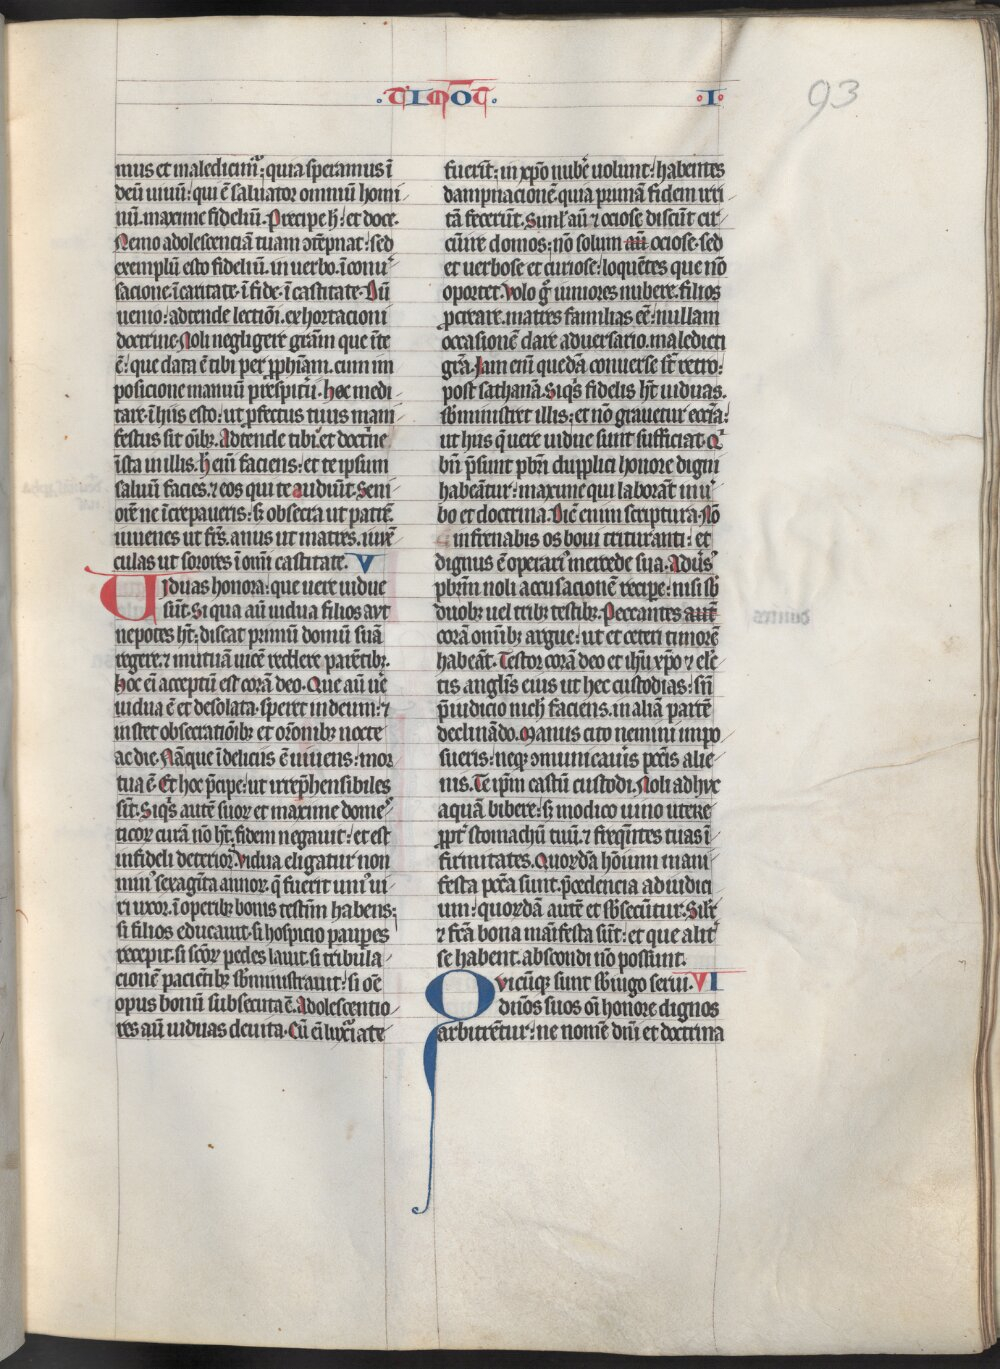 .TIMOT̄.
.I.
93
mus et maledicimᷣ: quia speramus ī
deū uiuū: qui ē saluator omniū homi
nū. maxime fideliū. Precipe h̄: et doce.
Nemo adolescenciā tuam ↄtēpnat: sed
exemplū esto fideliū. in uerbo. ī conuᷣ
sacione ī caritate. ī fide. ī castitate. Dū
uenio: adtende lectiōi. exhortacioni
doctrine. Noli negligere grām que īte
ē: que data ē tibi per pphīam. cum im
posicione manuū pr̄espiṫii. hec medi
tare. ī hiis esto: ut ꝓfectus tuus mani
festus sit oībꝫ. Adtende tibi: et doctͥne
īsta in illis. h̄ eīm faciens: et te ipsum
saluū facies. ⁊ eos qui te audiūt. Seni
orē ne īcrepaueris: sꝫ obsecra ut patrē.
iuuenes ut frs̄. anus ut matres. iuuē
culas ut sorores ī omī castitate. V
Uiduas honora: que uere uidue
sūt. Si qua aū uidua filios aut
nepotes hꝫt: discat primū domū suā
regere. ⁊ mutuā uicē reddere parētibꝫ.
hoc eī acceptū est corā deo. Que aū ue̅
uidua ē et desolata. speret in deum: ⁊
instet obsecratiōibꝫ et or̄onibꝫ nocte
ac die. Nāque ī deliciis ē uiuens: mor
tua ē Et hoc p̄cipe: ut irrep̄hensibiles
sīt. Siqͥs autē suoꝝ et maxime domeᷤ
ticoꝝ curā nō hꝫt. fidem negauit: et est
infideli deterior. Vidua eligatur non
minᷤ sexagīta annoꝝ. q̄ fuerit uniᷤ ui
ri uxor. ī operibꝫ bonis testīm habens:
si filios educauit. si hospicio paupes
recepit. si scōꝝ pedes lauit. si tribula
cionē pacientibꝫ sb̄ministrauit: si oē
opus bonū subsecuta ē. Adolescentio
res aū uiduas deuita. Cū eī luxͥiate
fuerīt: in xpō nub̄e uolunt: habentes
dampnacionē. quia primā fidem irri
tā fecerūt. Siml̄ aū ⁊ ociose discūt cir
cūire domos: nō solum aū ociose. sed
et uerbose et curiose: loquētes que nō
oportet. Volo g̊ iuniores nubere. filios
ꝓcreare. matres familias eē: nullam
occasionē dare aduersario. maledicti
gr̄a. Iam enī quedā conuerse st̄ retro:
post sathanā. Siqͥs fidelis hꝫt uiduas.
sb̄ministret illis: et nō grauetur ecclīa:
ut hiis q̄ uere uidue sunt sufficiat. Qͥ
bn̄ p̄sunt pbr̄i dupplici honore digni
habeātur: maxime qui laborāt in uᷣ
bo et doctrina. Dicē enim scriptura. Nō
infrenabis os boui trituranti: et
dignus ē operariᷤ mercede sua. Aduᷣs̄
pbrm̄ noli accusacionē recipe: nisi sb̄
duobꝫ uel tribꝫ testibꝫ. Peccantes autē
corā omībꝫ argue: ut et ceteri timorē
habeāt. Testor corā deo et ih̄u xp̄o ⁊ elec
tis angl̄is eius ut hec custodias: sn̄
p̄iudicio nichͥ faciens. in aliā partē
declinādo. Manus cito nemini impo
sueris: neqꝫ ↄmunicaūis pctīs alie
nis. Te ipm̄ castū custodi. Noli adhuc
aquā bibere: sꝫ modico uino utere
ꝓptᷣ stomachū tuū. ⁊ freq̄ntes tuas ī
firmitates. Quorūdā hōium mani
festa pctā sunt. p̄cedencia ad iudici
um: quorūdā autē et sb̄secūtur. Silr̄
⁊ fctā bona maīfesta sūt: et que alitᷣ
se habent. abscondi nō possunt.
Quicūqꝫ sunt sb̄ iugo serui. VI
dn̄os suos oī honore dignos
arbitrētur: ne nomē dnī et doctrina